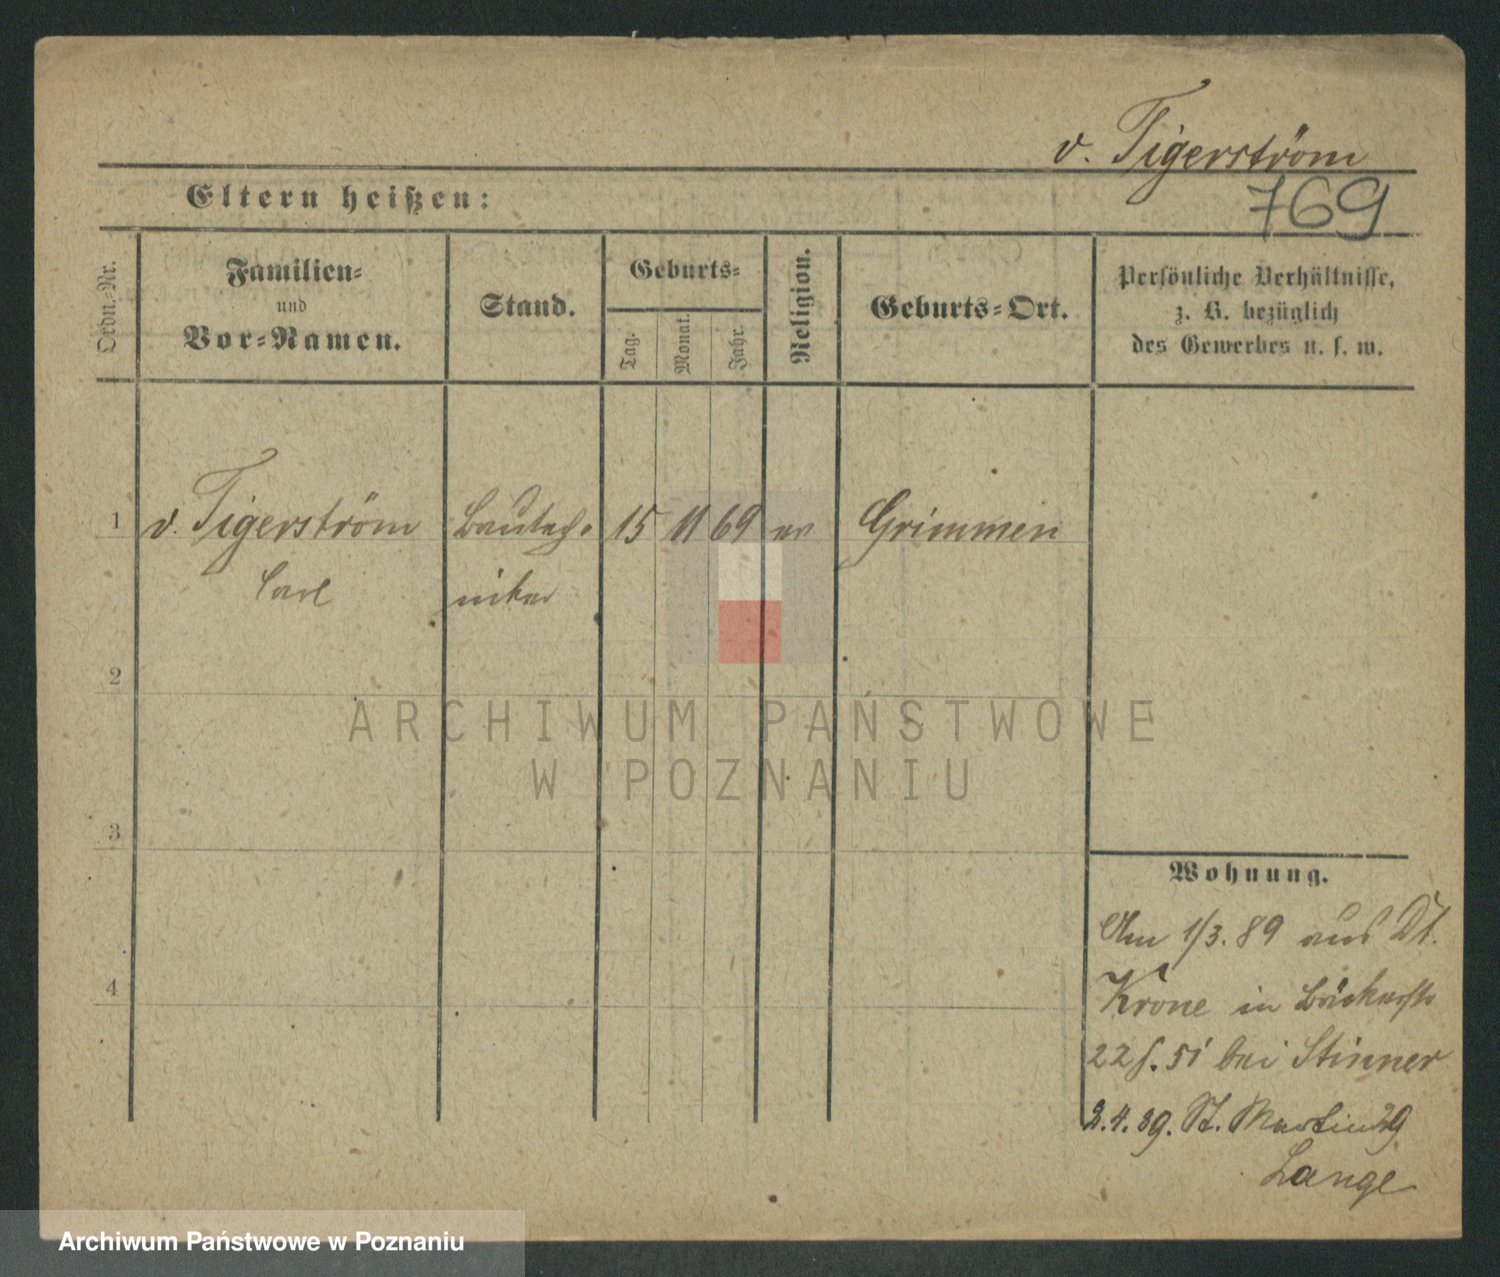 v. Tigerström
769
Eltern heißen:
Ordn.-Nr.
Familien-
und
Vor-Namen.
Stand.
Geburts-
Tag.
Monat.
Jahr.
Religion.
Geburts-Ort.
Persönliche Verhältnisse,
z. B. bezüglich
des Gewerbes u. s. w.
1 v. Tigerström Bautech- 15 11 69 ev Grimmen
Carl niker
2
3
4
Wohnung.
Am 1/3. 89 aus Dt.
Krone in Bäckerstr
22 bei Stinner
2.4.89. St. Martin 29
Lange
ARCHIWUM PAŃSTWOWE
W POZNANIU
Archiwum Państwowe w Poznaniu